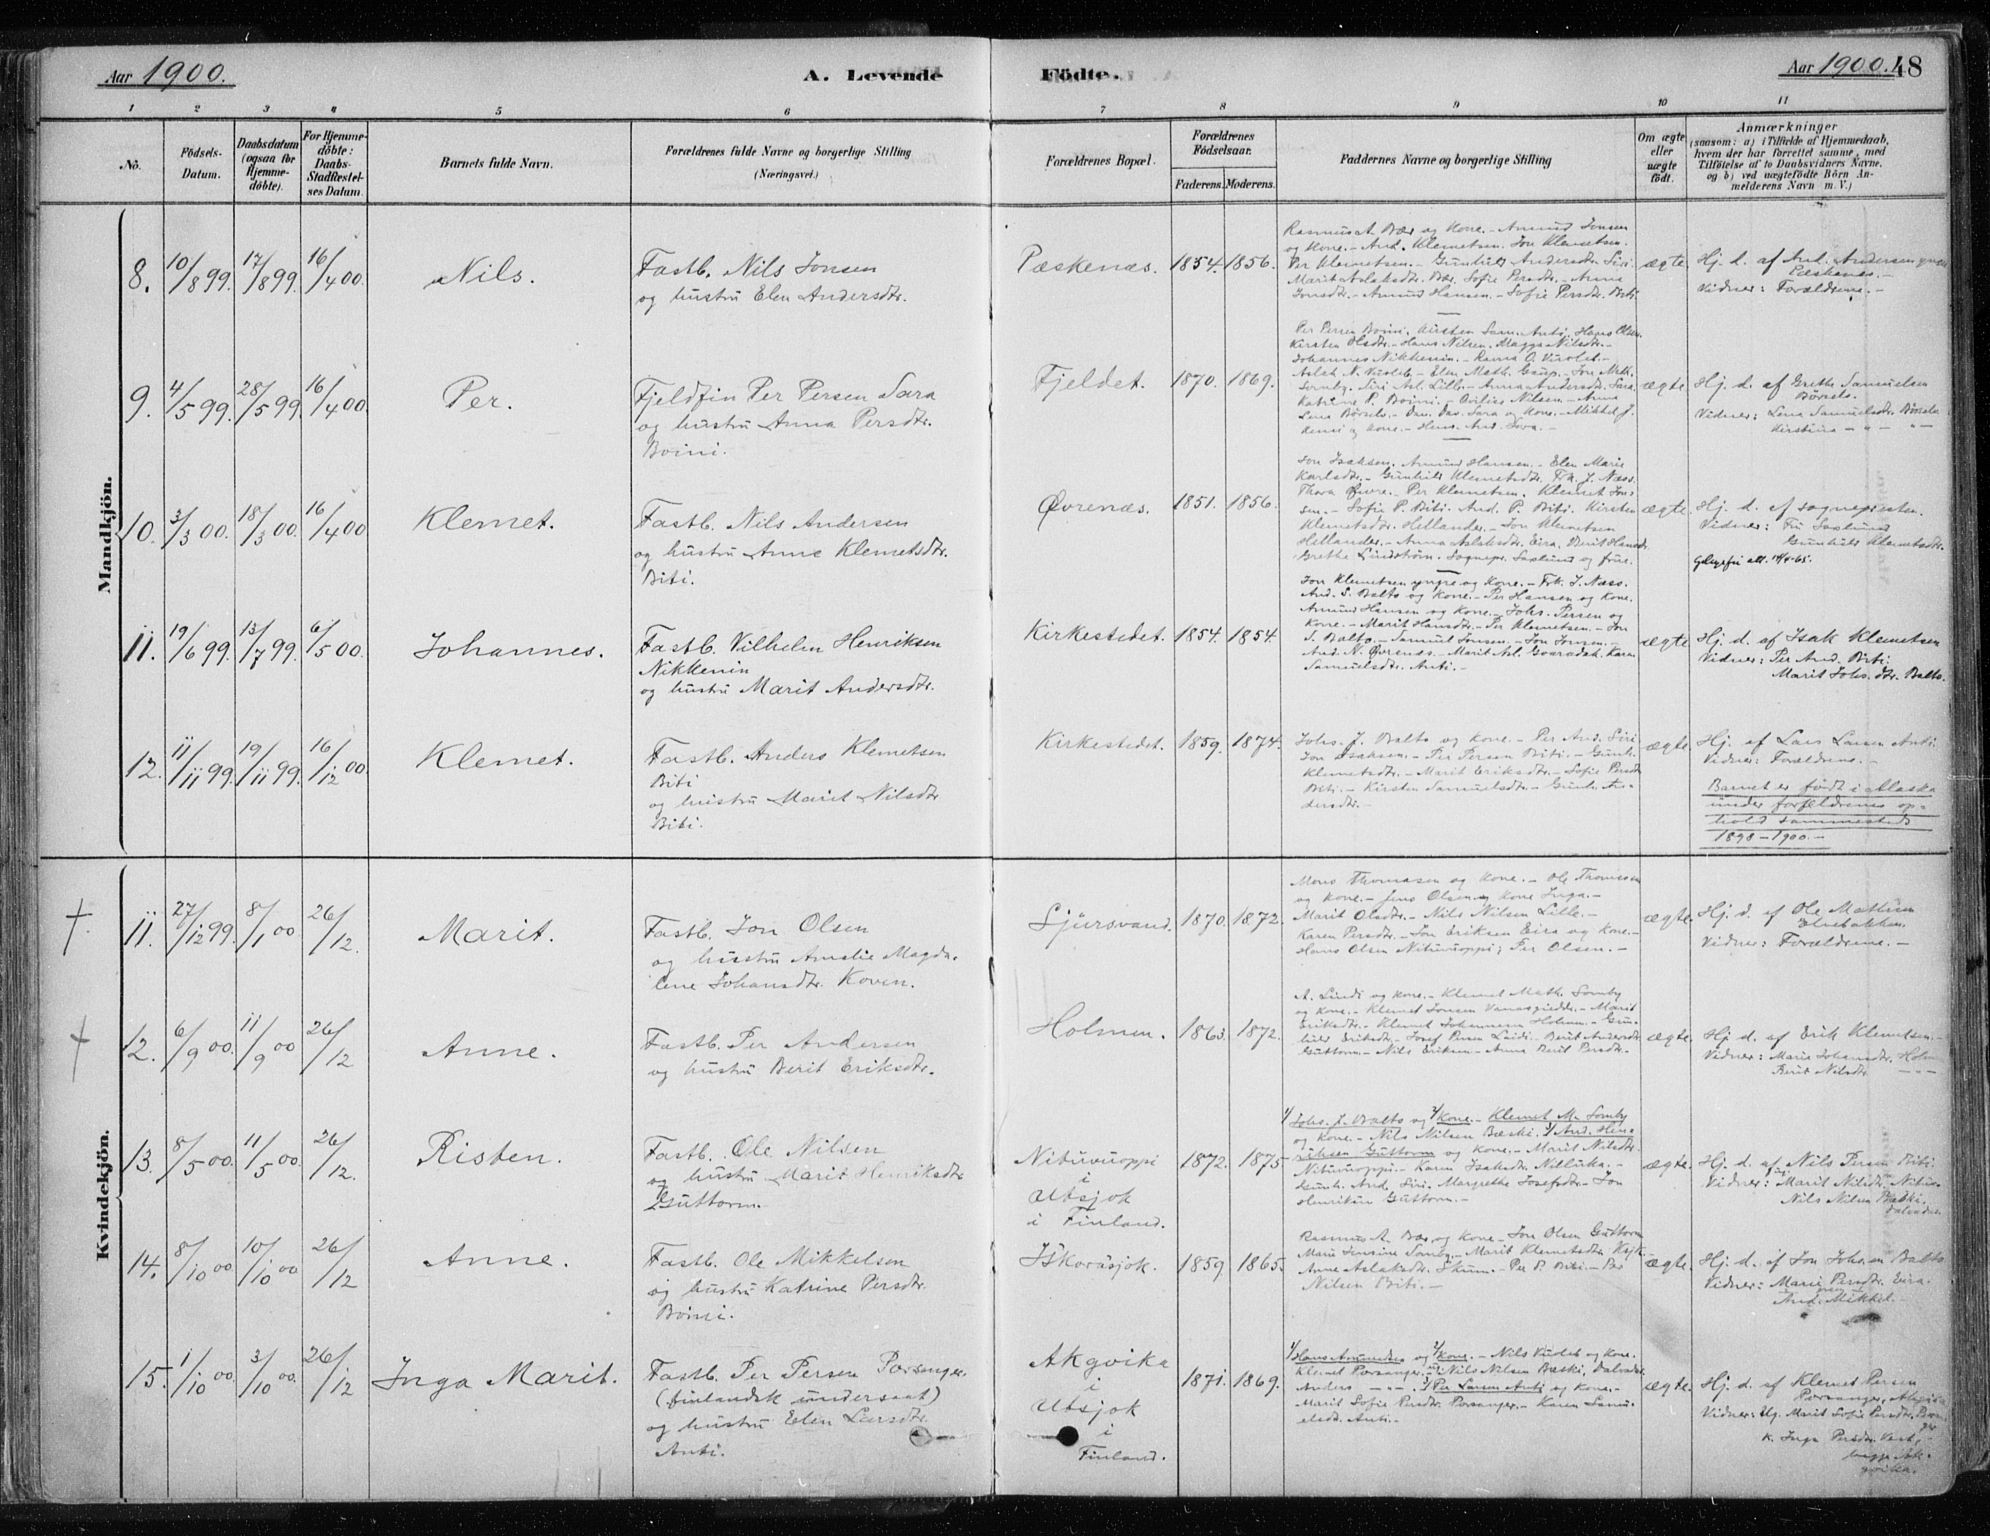 Aar 1900.
A. Levende
Födte.
Aar 1900. 48
1 2 3 4 5 6 7 8 9 10 11
No.
Födsels-
Datum.
Daabsdatum
(ogsaa for
Hjemme-
döbte).
For Hjemme-
döbte:
Daabs-
Stadfæstel-
ses Datum.
Barnets fulde Navn.
Forældrenes fulde Navne og borgerlige Stilling
(Næringsvei.)
Forældrenes Bopæl.
Forældrenes
Födselsaar.
Faderens. Moderens.
Faddernes Navne og borgerlige Stilling
Om ægte
eller
uægte
født.
Anmærkninger
(saasom: a) i Tilfælde af Hjemmedaab,
hvem der har forrettet samme, med
Tilföielse af to Daabsvidners Navne.
og b) ved uægtefödte Börn An-
melderens Navn m. V.)
Mandkjön.
8. 10/8 99. 17/8 99. 16/4 00. Nils.
Fastb. Nils Jonsen
og hustru Elen Andersdtr.
Pæskenæs. 1854. 1856.
Rasmus A. Bær og kone. - Amund Jonsen
og kone. - And. Klemetsen. Jon Klemetsen.
Per Klemetsen. - Gunhild Andersdtr. Siri
Marit Aslaksdtr. Bær, Sofie Persdtr. - Anna
Jonsdtr. - Amund Hansen. - Sofie Persdtr. Biti
ægte.
Hj. d. af And. Andersen
Pæskenæs. -
Vidner: Forældrene. -
9. 4/5 99. 28/5 99. 16/4 00. Per.
Fjeldfin Per Persen Sara
og hustru Anna Persdtr.
Boini.
Fjeldet. 1870. 1869.
Per Persen Boini. Kirsten Sam. Anti, Hans Olsen.
Kirsten Olsdtr. - Hans Nilsen. Magga Nilsdtr. -
Johannes Nikkenin. - Rasmus O. Vuolab. -
Aslak N. Vuolab. - Elen Math. Gaup. - Jon Mik.
Somby. Siri Asl. Lille. - Anna Andersdtr. Sara
Katrine P. Boini. - Nilsen. - Anna
Lena Börsele. - Sara og kone. - Mikkel J.
og kone. - Henr. And. Sara. -
ægte.
Hj. d. af Grethe Samuelsen
Börsele.
Vidner: Lena Samuelsdtr. Börsele
Kirstina - " - " -
10. 3/3 00. 18/3 00. 16/4 00. Klemet.
Fastb. Nils Andersen
og hustru Anne Klemetsdtr.
Biti.
Øvrenæs. 1851. 1856.
Jon Isaksen. Amund Hansen. - Elen Marie
Karlsdtr. - Gunhild Klemetsdtr. Frk. J. Næss.
Thora Øwre. - Per Klemetsen. Klemet Jon-
sen. - Sofie P. Biti. And. P. Biti. Kirsten
Klemetsdtr. Hellander. - Jon Klemetsen
Hellander. - Anna Aslaksdtr. Eira. Berit Hansdtr.
Grethe Lindström. Sognepr. Saxlund og frue.
ægte.
Hj. d. af sognepresten.
Vidner: Fru Saxlund
Gunhild Klemetsdtr.
11. 19/6 99. 13/7 99. 6/5 00. Johannes.
Fastb. Vilhelm Henriksen
Nikkenin
og hustru Marit Andersdtr.
Kirkestedet. 1854. 1854.
Jon Klemetsen yngre og kone. - Frk. J. Næss.
And. S. Balto og kone. - Per Hansen og kone.
Amund Hansen og kone. - Johs. Persen og
kone. - Marit Hansdtr. - Per Klemetsen. - Jon
S. Balto. - Samuel Jonsen. - Jon Jonsen. -
And. N. Øvrenæs. - Marit Asl. Karen
Samuelsdtr. Anti. -
ægte.
Hj. d. af Isak Klemetsen
Vidner: Per And. Biti.
Marit Johs. dtr. Balto.
12. 11/11 99. 19/11 99. 16/12 00. Klemet.
Fastb. Anders Klemetsen
Biti
og hustru Marit Nilsdtr.
Biti.
Kirkestedet. 1859. 1874.
Johs. J. Balto og kone. - Per And. Siri.
Jon Isaksen. - Per Persen Biti. - Gunh.
Klemetsdtr. - Marit Eriksdtr. - Sofie Persdtr.
Biti. - Kirsten Samuelsdtr. - Gunh. An-
dersdtr. -
ægte.
Hj. af Lars Larsen Anti.
Vidner: Forældrene. -
Barnet er født i Alaska
under forældrenes op-
hold sammesteds
1898-1900. -
Kvindekjön.
†. 11. 27/12 99. 8/1 00. 26/12. Marit.
Fastb. Jon Olsen
og hustru Amalie Magda-
lene Johansdtr. Koven.
Ljursvand. 1870. 1872.
Mons Thomasen og kone. - Ole Thomesen
og kone. - Jens Olsen og kone Inga. -
Marit Olsdtr. - Nils Nilsen Lille. -
Karen Persdtr. - Jon Eriksen Eira og kone. -
Hans Olsen Nituvuoppi; Per Olsen. -
ægte.
Hj. d. af Ole Mathisen
Elvebakken.
Vidner: Forældrene. -
† 12. 6/9 00. 11/9 00. 26/12. Anne.
Fastb. Per Andersen
og hustru Berit Eriksdtr.
Holmen. 1863. 1872.
A. Lindi og kone. - Klemet Math. Somby
og kone. - Klemet Jonsen - Marit
Eriksdtr. - Klemet Johannesen Holmen. - Gun-
hild Eriksdtr. - Josef Persen Laiti. - Berit Andersdtr.
Guttorm. - Nils Eriksen. - Anna Berit Persdtr. -
ægte.
Hj. d. af Erik Klemetsen. -
Vidner: Marie Johansdtr. Holmen
Berit Nilsdtr. - " -
13. 8/5 00. 11/5 00. 26/12. Risten.
Fastb. Ole Nilsen
og hustru Marit Henriksdtr.
Guttorm.
Nituvuoppi
i
Utsjok
i Finland.
1872. 1875
1/ Johs. J. Balto og 2/ kone. - Klemet M. Somby
og kone. - Nils Nilsen Bæski. 3/ And. Hen-
riksen Guttorm og kone. - Marit Nilsdtr.
Nituvuoppi. - Karen Isaksdtr. Nilluka. -
Gunh. And. Siri. Margrethe Josefsdtr. - Jon
Henriksen Guttorm. -
ægte.
Hj. d. af Nils Persen Biti.
Vidner: Marit Nilsdtr. Nitu-
Nils Nilsen Bæski.
Dalvadas.
14. 8/10 00 10/10 00 26/12 Anne.
Fastb. Ole Mikkelsen
og hustru Katrine Persdtr.
Boini.
Iškorasjok. 1859 1865.
Rasmus A. Bær og kone. - Jon Olsen Guttorm
Marie Jensine Somby. - Marit Klemetsdtr.
Anne Aslaksdtr. Skum. - Per P. Biti. - Per
Nilsen Biti. -
ægte.
Hj. d. af Jon Johsen Balto
Vidner: Marie Persdtr. Eira.
And. Mikkel. -
15. 1/10 00. 3/10 00. 26/12 Inga Marit.
Fastb. Per Persen Porsanger.
(finlandsk undersaat)
og hustru Elen Larsdtr.
Anti.
Akgvika
i
Utsjok
i
Finland.
1871. 1869.
1/ Hans Amundsen og 2/ kone. - Nils Vuolab og kone.
Klemet Porsanger. - Nils Nilsen Bæski, Dalvadas
Anders - " - . 3/ Per Larsen Anti og kone. -
Marit Sofie Persdtr. Porsanger. - Karen Samu-
elsdtr. Anti. -
ægte.
Hj. d. af Klemet Persen
Porsanger, Akgvika
Vidner: Ug. Marit Sofie Persdtr. Porsan-
ger
K. Inga Persdtr.